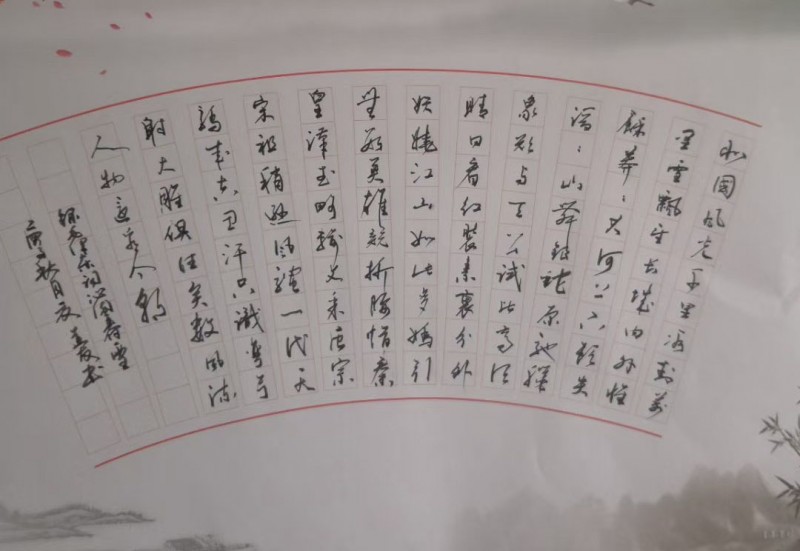 北国风光千里冰封万
里雪飘望长城内外惟
餘莽〻大河上下顿失
滔〻山舞银蛇原驰蜡
象欲与天公试比高须
晴日看红装素裹分外
妖娆江山如此多娇引
無数英雄竞折腰惜秦
皇汉武略输文采唐宗
宋祖稍逊风骚一代天
骄成吉思汗只识弯弓
射大雕俱往矣数风流
人物还看今朝
录毛泽东词沁园春雪
秋月
书